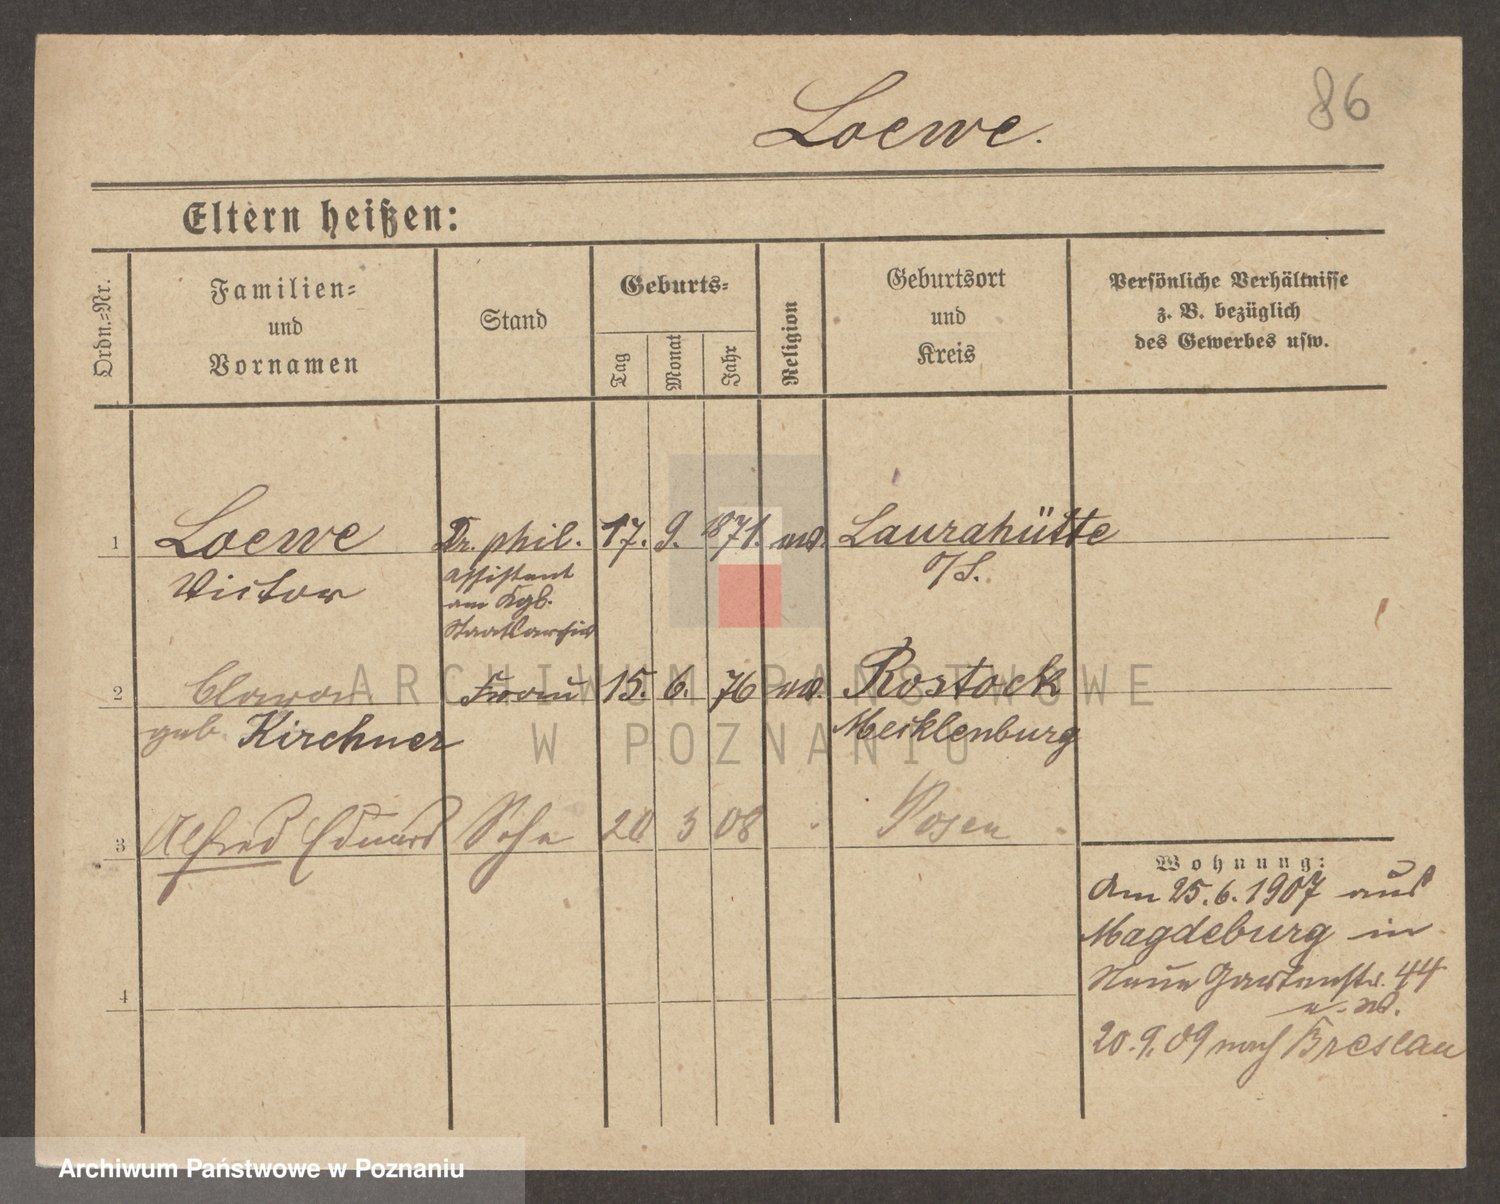 86
Loewe.
Eltern heißen:
Ordn.-Nr.
Familien-
und
Vornamen
Stand
Geburts-
Tag
Monat
Jahr
Religion
Geburtsort
und
Kreis
Persönliche Verhältnisse
z. B. bezüglich
des Gewerbes usw.
1 Loewe Dr. phil. 17. 9. 1871. Laurahütte
Victor Assistent O/S.
am Kgl.
Staatsarchiv
2 Clara Frau 15. 6. 76 Rostock
geb. Kirchner Mecklenburg
3 Alfred Eduard Sohn 20 3 08 Posen
Wohnung:
Am 25.6.1907 aus
Magdeburg in
Neue Gartenstr. 44
20.9.09 nach Breslau
4
ARCHIWUM PAŃSTWOWE
W POZNANIU
Archiwum Państwowe w Poznaniu